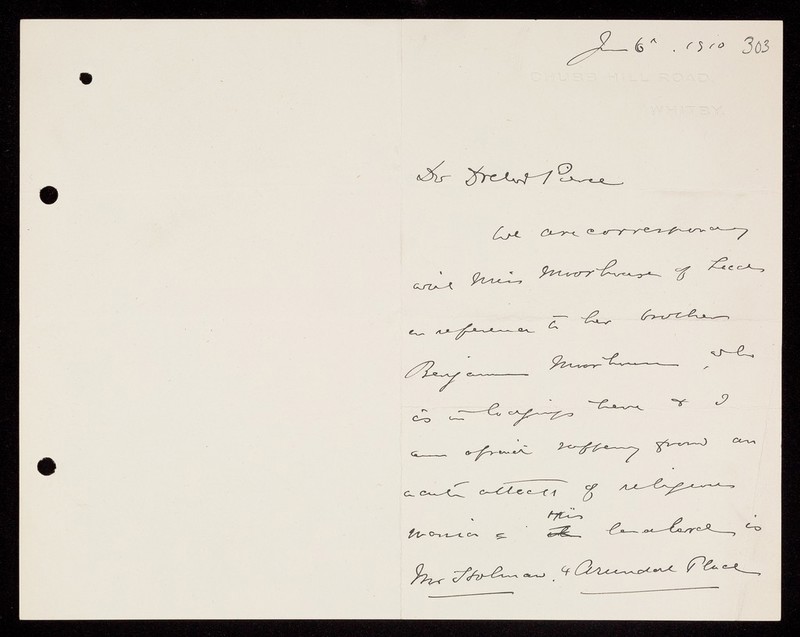 Jan 6th. 1910 303
CHUBB HILL ROAD,
WHITBY.
Dr Bedford Pierce
We are corresponding
with Miss Moorhouse of Leeds
in reference to her brother
Benjamin Moorhouse, who
is in lodgings here & I
am afraid suffering from an
acute attack of religious
mania. His landlord is
Mr Holman, 4 Arundel Place